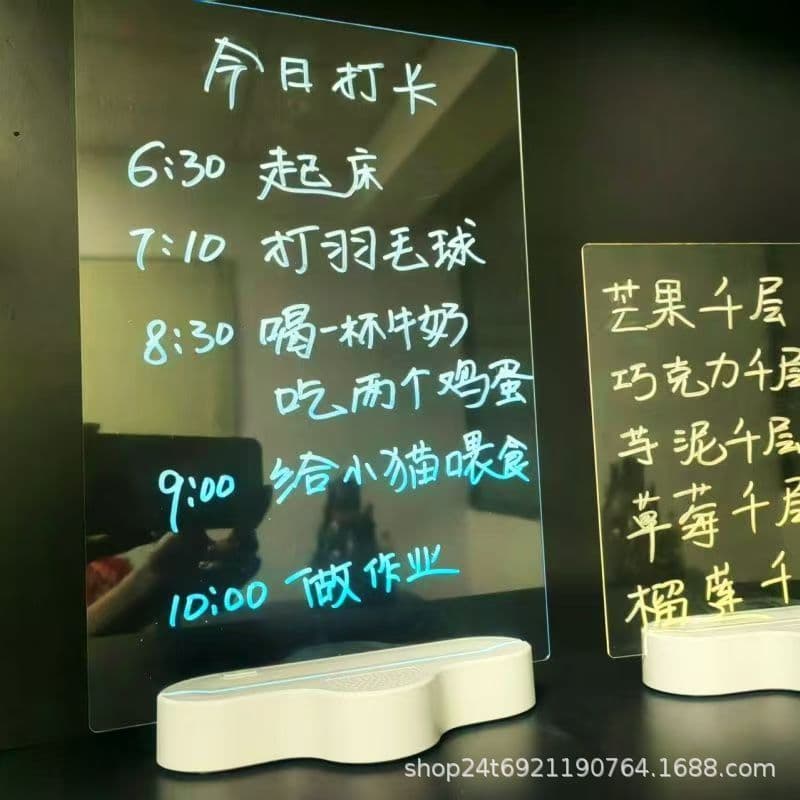 今日打长
6:30 起床
7:10 打羽毛球
8:30 喝一杯牛奶
吃两个鸡蛋
9:00 给小猫喂食
10:00 做作业
芒果千层
巧克力千层
芋泥千层
草莓千层
榴莲千
shop24t6921190764.1688.com